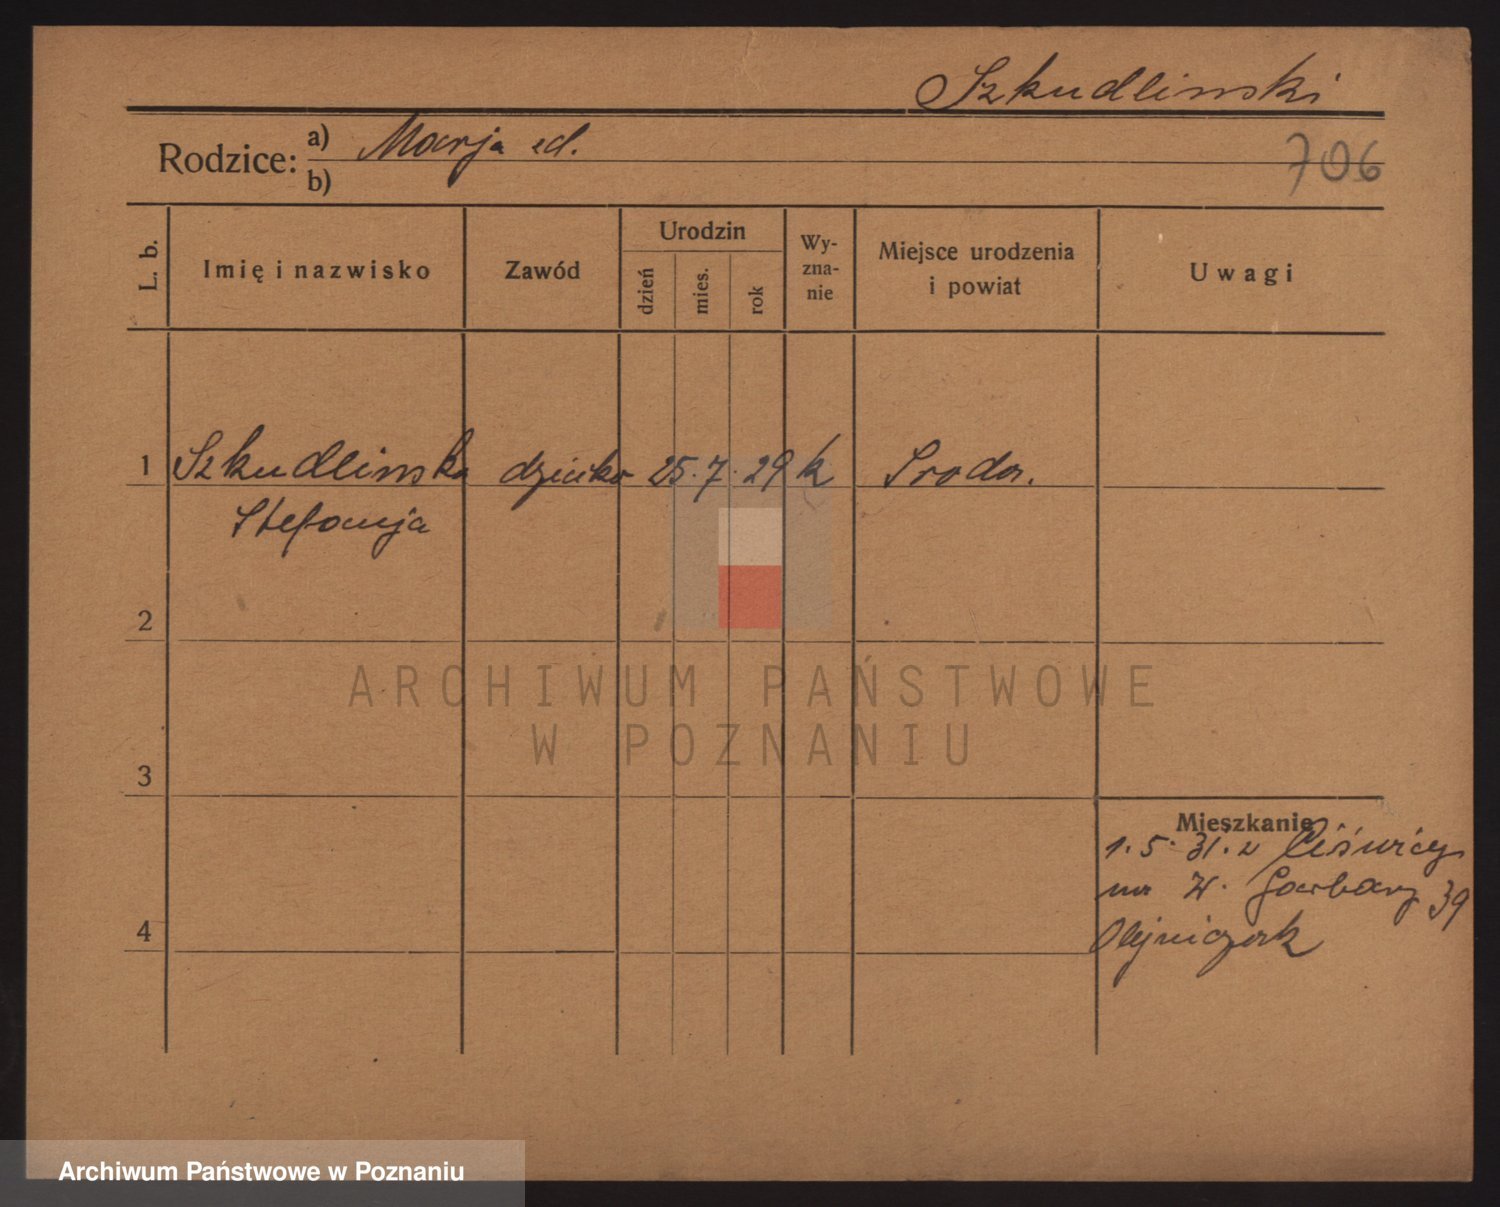 Szkudlinski
Rodzice: a) Marja ed.
b)
706
L. b.
Imię i nazwisko
Zawód
Urodzin
dzień
mies.
rok
Wy-
zna-
nie
Miejsce urodzenia
i powiat
Uwagi
1 Szkudlinska dziecko 25. 7. 29 k Środa.
Stefanja
2
ARCHIWUM PAŃSTWOWE
W POZNANIU
3
Mieszkanie
1. 5. 31. z
na W. Garbary 39
4
Olejniczak
Archiwum Państwowe w Poznaniu